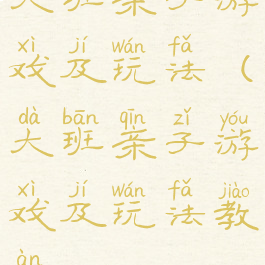 大班亲子游
xì jí wán fǎ
戏及玩法（
dà bān qīn zǐ yóu
大班亲子游
xì jí wán fǎ jiào
戏及玩法教
àn